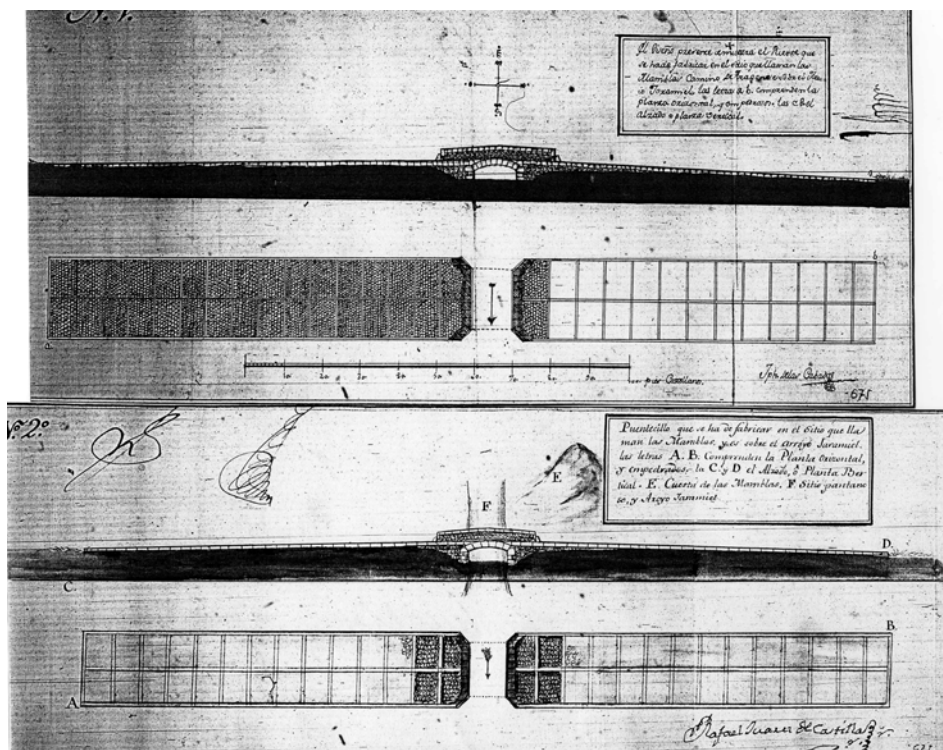 N. 1.
El Diseño presente demuestra el Puente que
se ha de fabricar en el sitio que llaman las
Mamblas Camino de
las letra a b. comprenden la
planta orizontal, y las c. d. el
alzado o planta vertical.
b
a
1o. 2o. 3o. 4o. 5o. 6o. 7o. 8o. 9o. 100. pies Castellano.
675
N.º 2.º
Puentecillo que se ha de fabricar en el Sitio que lla
man las Mamblas, y es sobre el arroyo Jaramiel.
las letras A. B. Comprenden la Planta Orizontal,
y empedrados: la C. y D el Alzado, ó Planta Ber
tical. E. Cuesta de las Mamblas. F. Sitio pantano
so, y Aroyo Jaramiel.
E
F
D.
C.
B.
A.
Rafael Juanz de Castilla